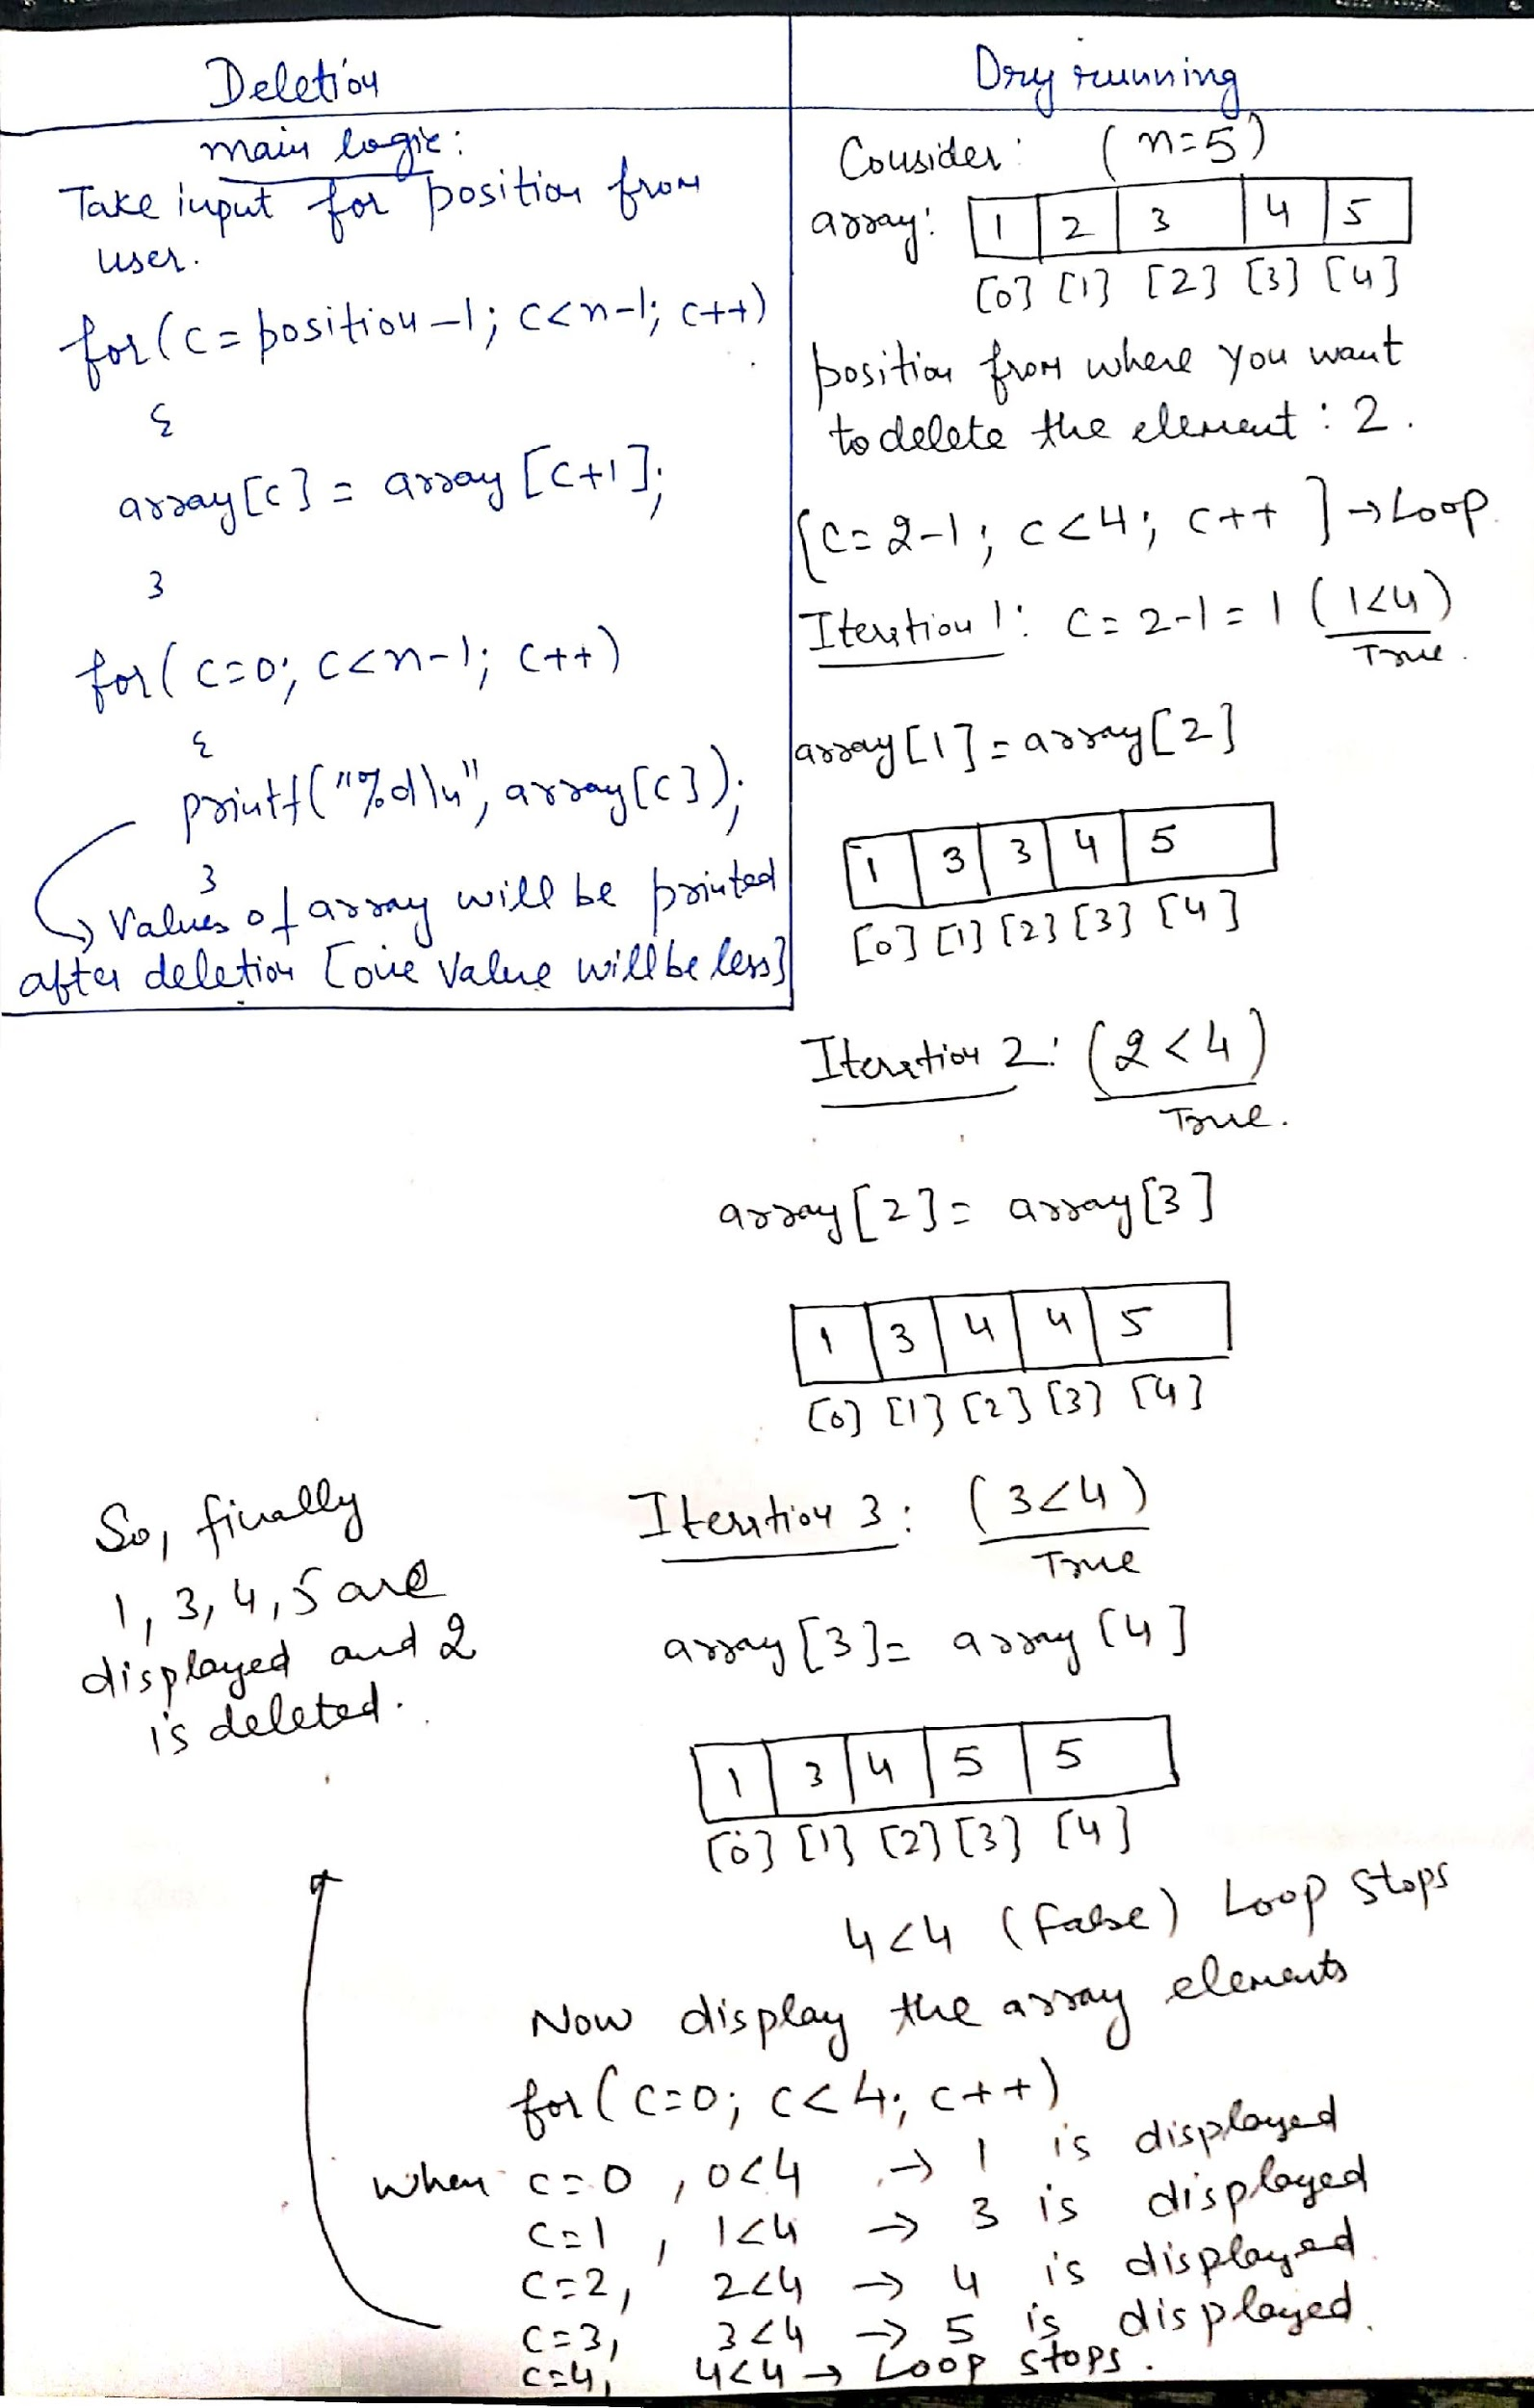 Deletion
main logic:
Take input for position from
user.
for(c=position-1; c<n-1; c++)
{
array[c] = array[c+1];
}
for(c=0; c<n-1; c++)
{
printf("%d\n", array[c]);
}
→ Values of array will be printed
after deletion [one value will be less]
Dry running
Consider: (n=5)
array: 1 2 3 4 5
[0] [1] [2] [3] [4]
position from where you want
to delete the element : 2.
[c=2-1; c<4; c++] → Loop.
Iteration 1: c=2-1=1 (1<4)
True.
array[1]=array[2]
1 3 3 4 5
[0] [1] [2] [3] [4]
Iteration 2: (2<4)
True.
array[2]= array[3]
1 3 4 4 5
[0] [1] [2] [3] [4]
Iteration 3: (3<4)
True
array[3]= array[4]
1 3 4 5 5
[0] [1] [2] [3] [4]
4<4 (False) Loop stops
Now display the array elements
for(c=0; c<4; c++)
when c=0, 0<4 → 1 is displayed
c=1, 1<4 → 3 is displayed
c=2, 2<4 → 4 is displayed.
c=3, 3<4 → 5 is displayed.
c=4, 4<4 → Loop stops.
So, finally
1, 3, 4, 5 are
displayed and 2
is deleted.